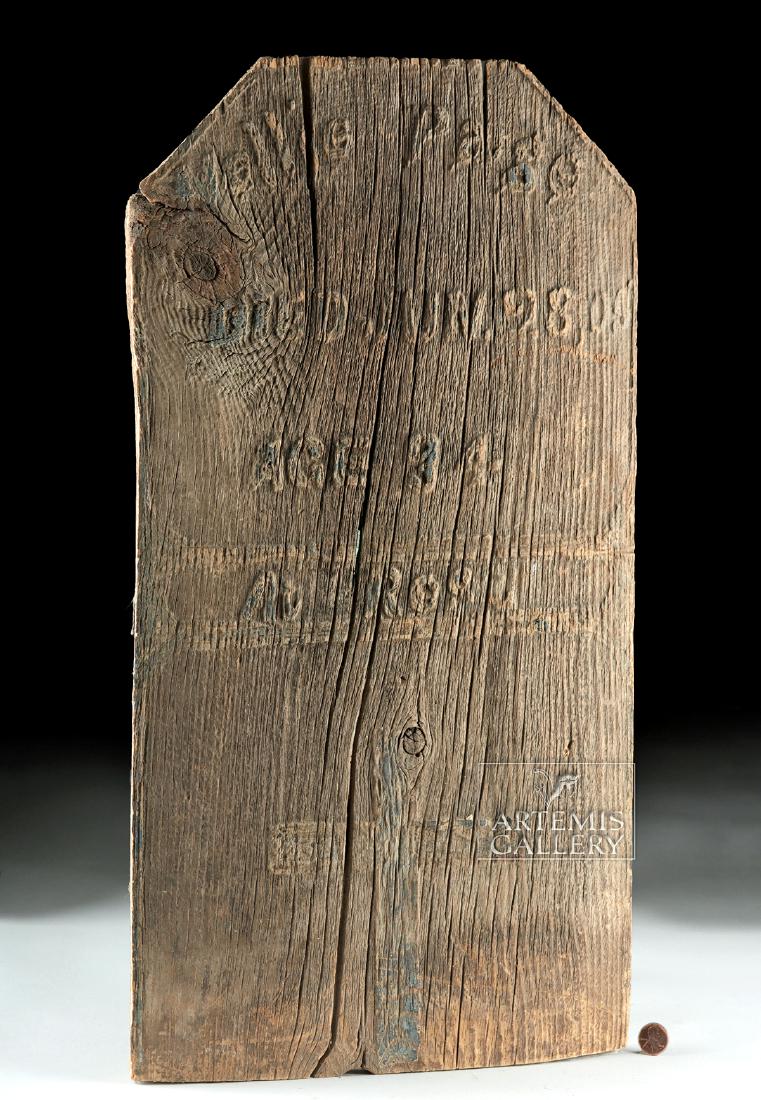 Nellie Page
DIED JUN. 28, 09
AGE 34
ARTEMIS
GALLERY